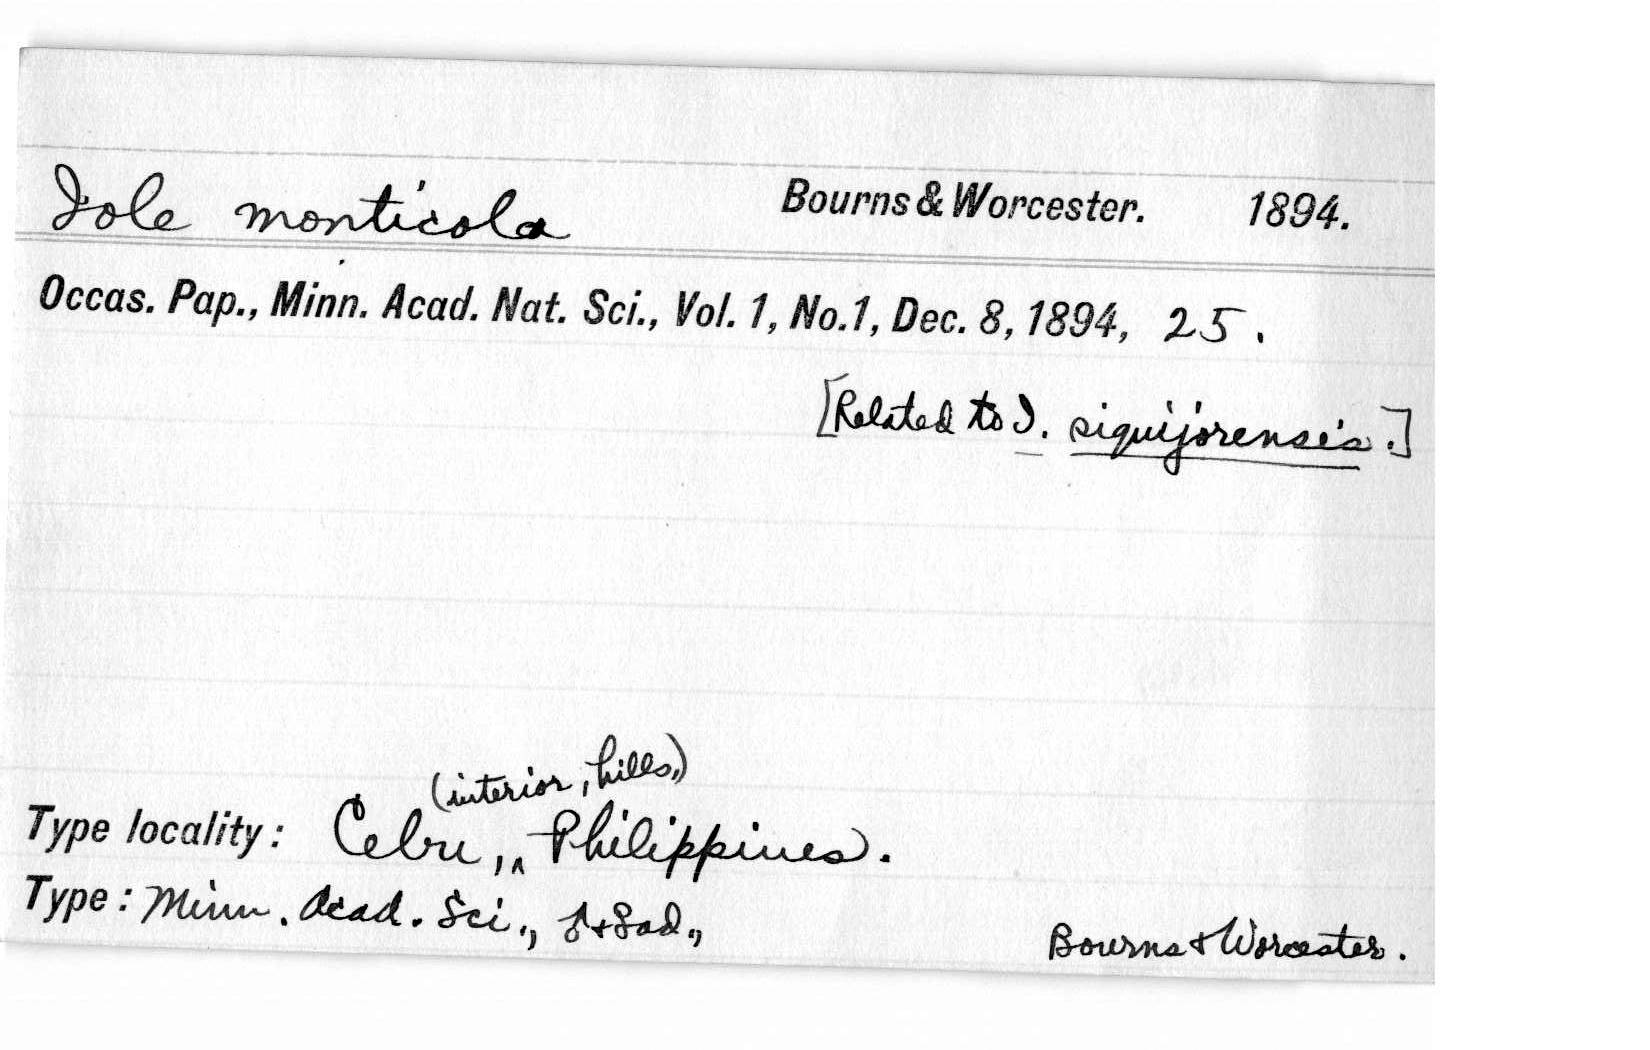 Iole monticola Bourns & Worcester. 1894.
Occas. Pap., Minn. Acad. Nat. Sci., Vol. 1, No.1, Dec. 8, 1894, 25.
[Related to I. siquijorensis.]
(interior, hills,)
Type locality: Cebu, ^ Philippines.
Type: Minn. Acad. Sci., ♂+♀ad., Bourns & Worcester.